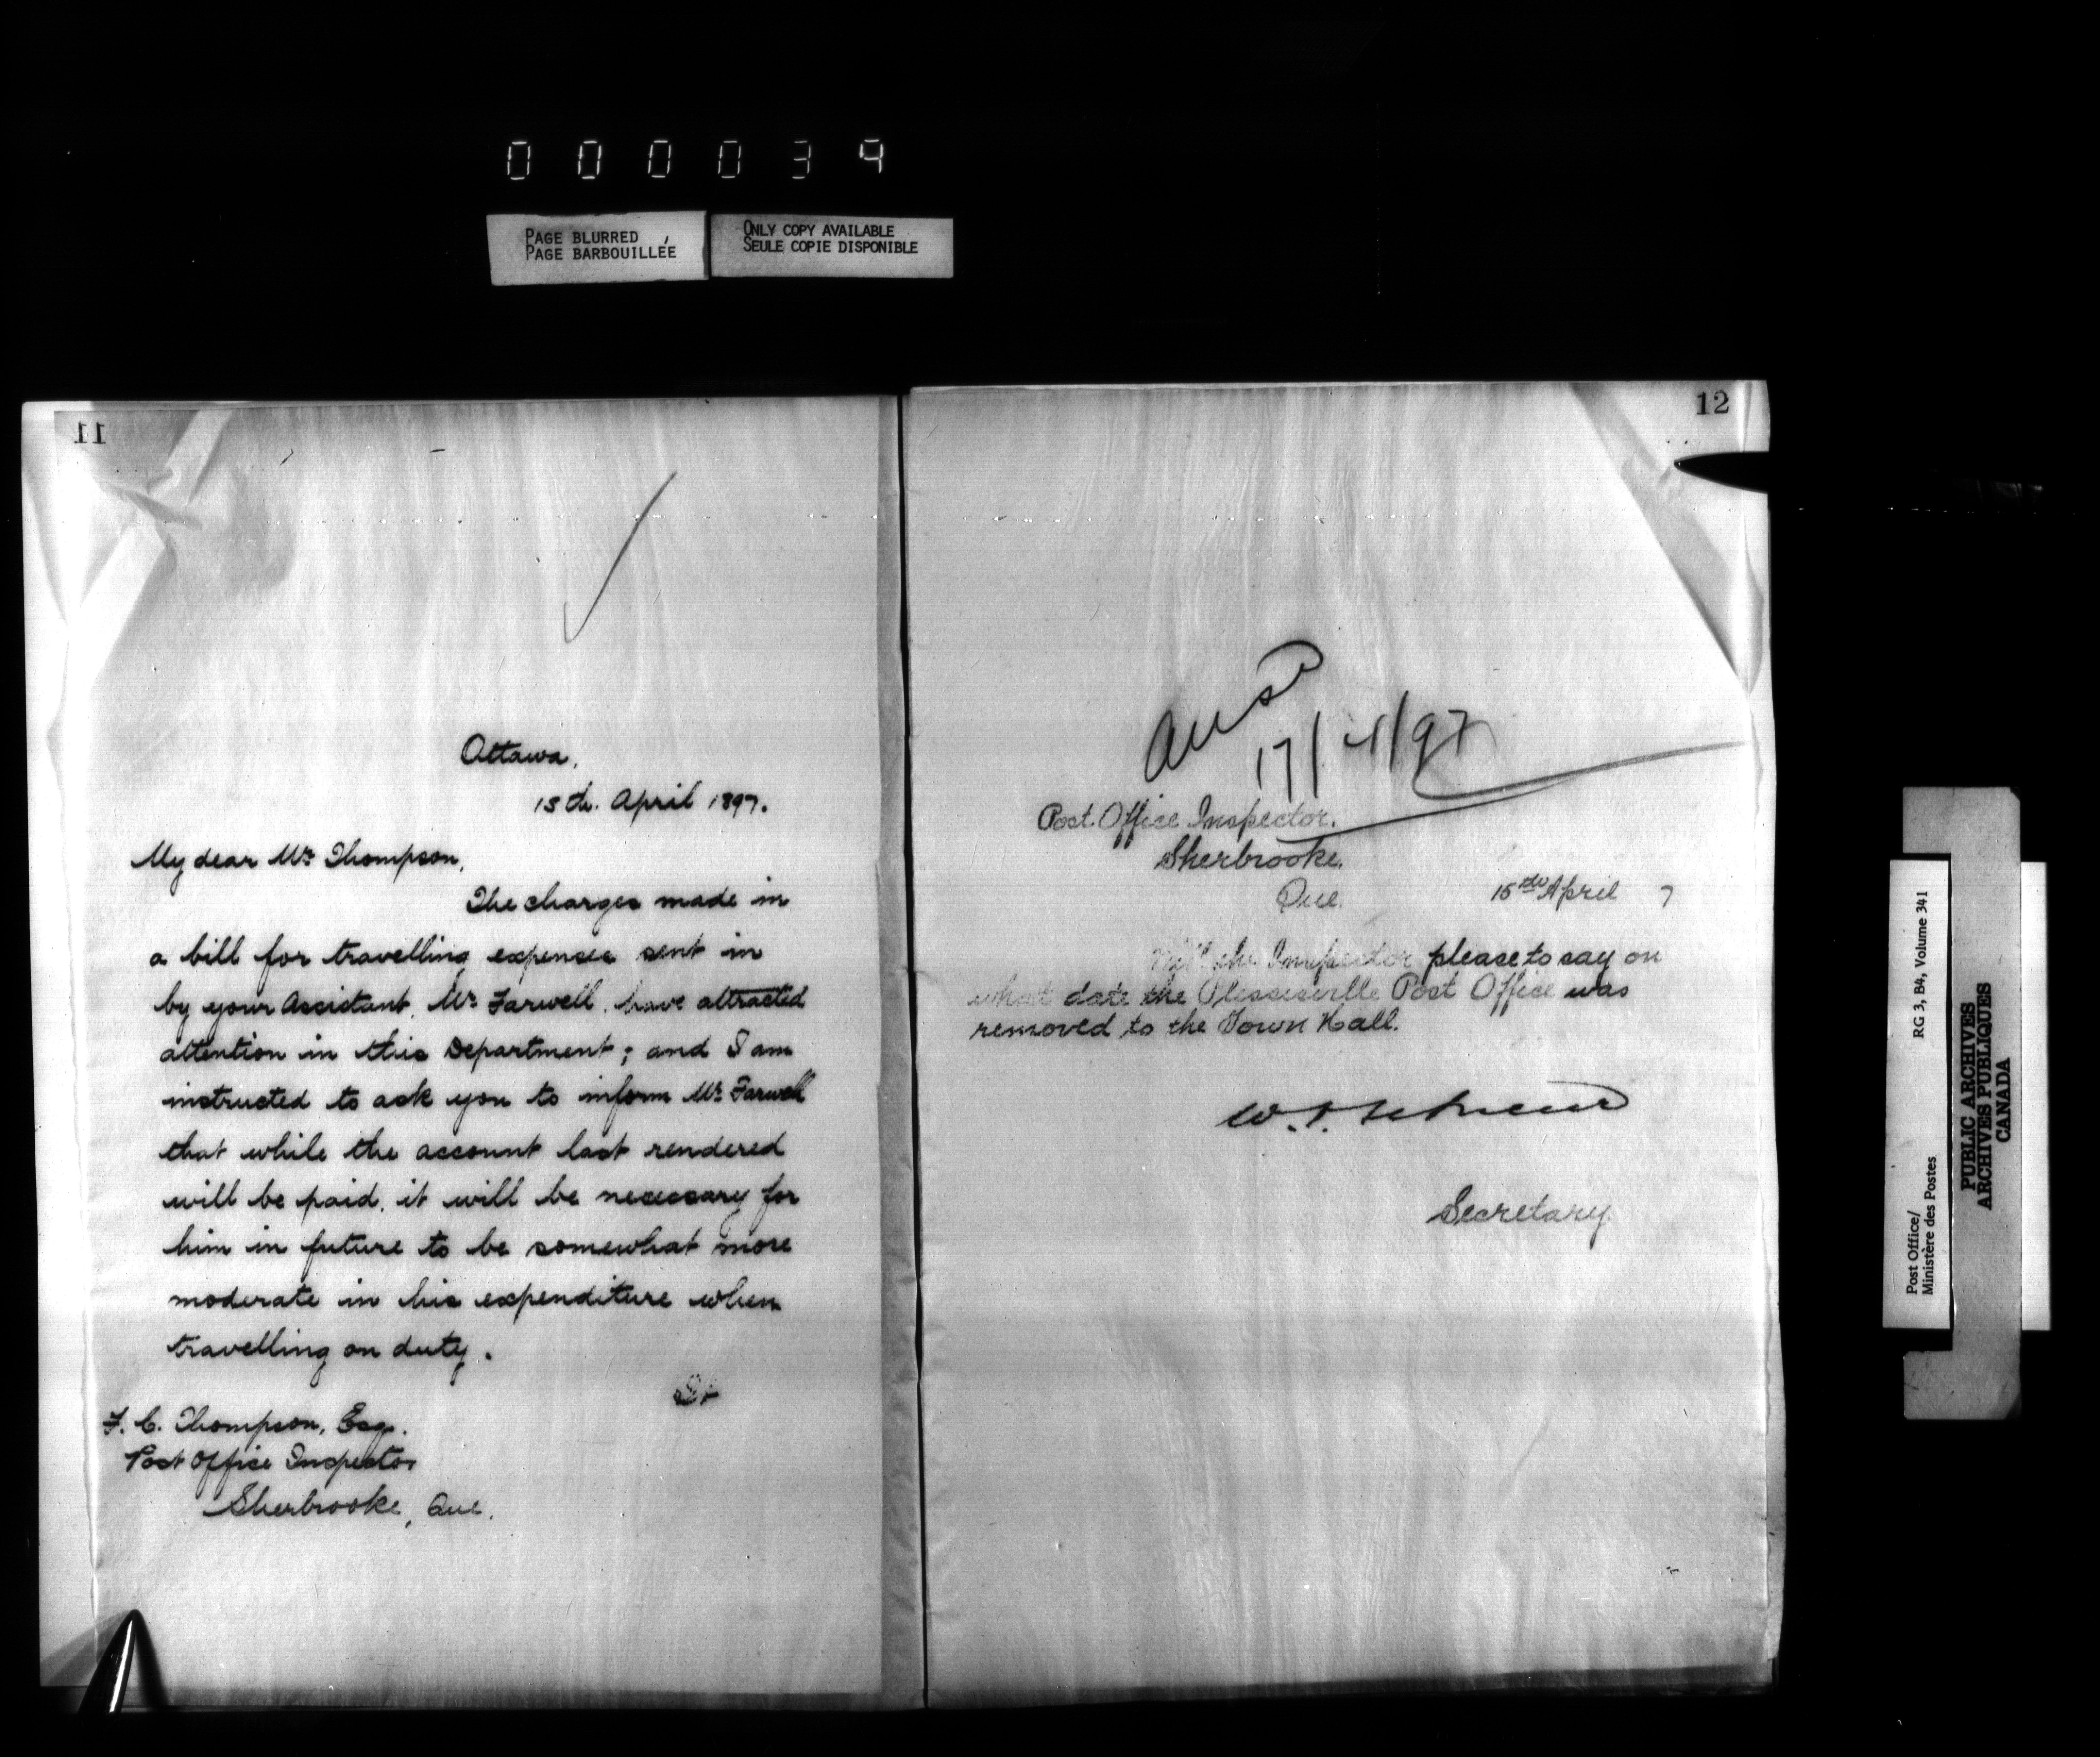 000039
PAGE BLURRED
PAGE BARBOUILLÉE
ONLY COPY AVAILABLE
SEULE COPIE DISPONIBLE
11
Ottawa,
15th. April 1897.
My dear Mr Thompson,
The charges made in
a bill for travelling expenses sent in
by your Assistant, Mr Farwell, have attracted
attention in this Department; and I am
instructed to ask you to inform Mr Farwell
that while the account last rendered
will be paid, it will be necessary for
him in future to be somewhat more
moderate in his expenditure when
travelling on duty.
F. C. Thompson, Esq.
Post Office Inspector
Sherbrooke, Que.
12
Ansd
17/4/97
Post Office Inspector.
Sherbrooke.
Que.
15th April 7
Will the Inspector please to say on
what date the Plessisville Post Office was
removed to the Town Hall.
Secretary.
Post Office/
Ministère des Postes
RG 3, B4, Volume 341
PUBLIC ARCHIVES
ARCHIVES PUBLIQUES
CANADA